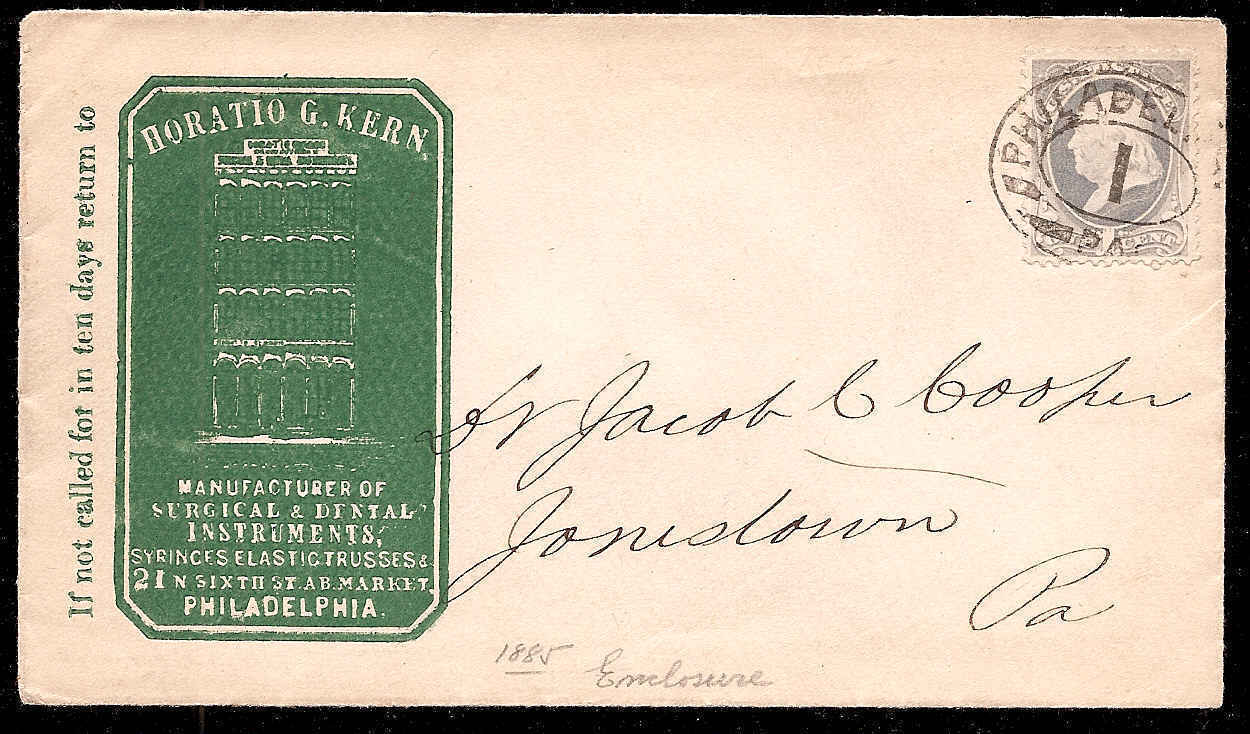 If not called for in ten days return to
HORATIO G. KERN
MANUFACTURER OF
SURGICAL & DENTAL
INSTRUMENTS,
SYRINGES ELASTIC TRUSSES &
21 N SIXTH ST. AB. MARKET
PHILADELPHIA.
PHILADEL
1
PA.
CENT
Dr Jacob C Cooper
Jonestown
Pa
1885 Enclosure